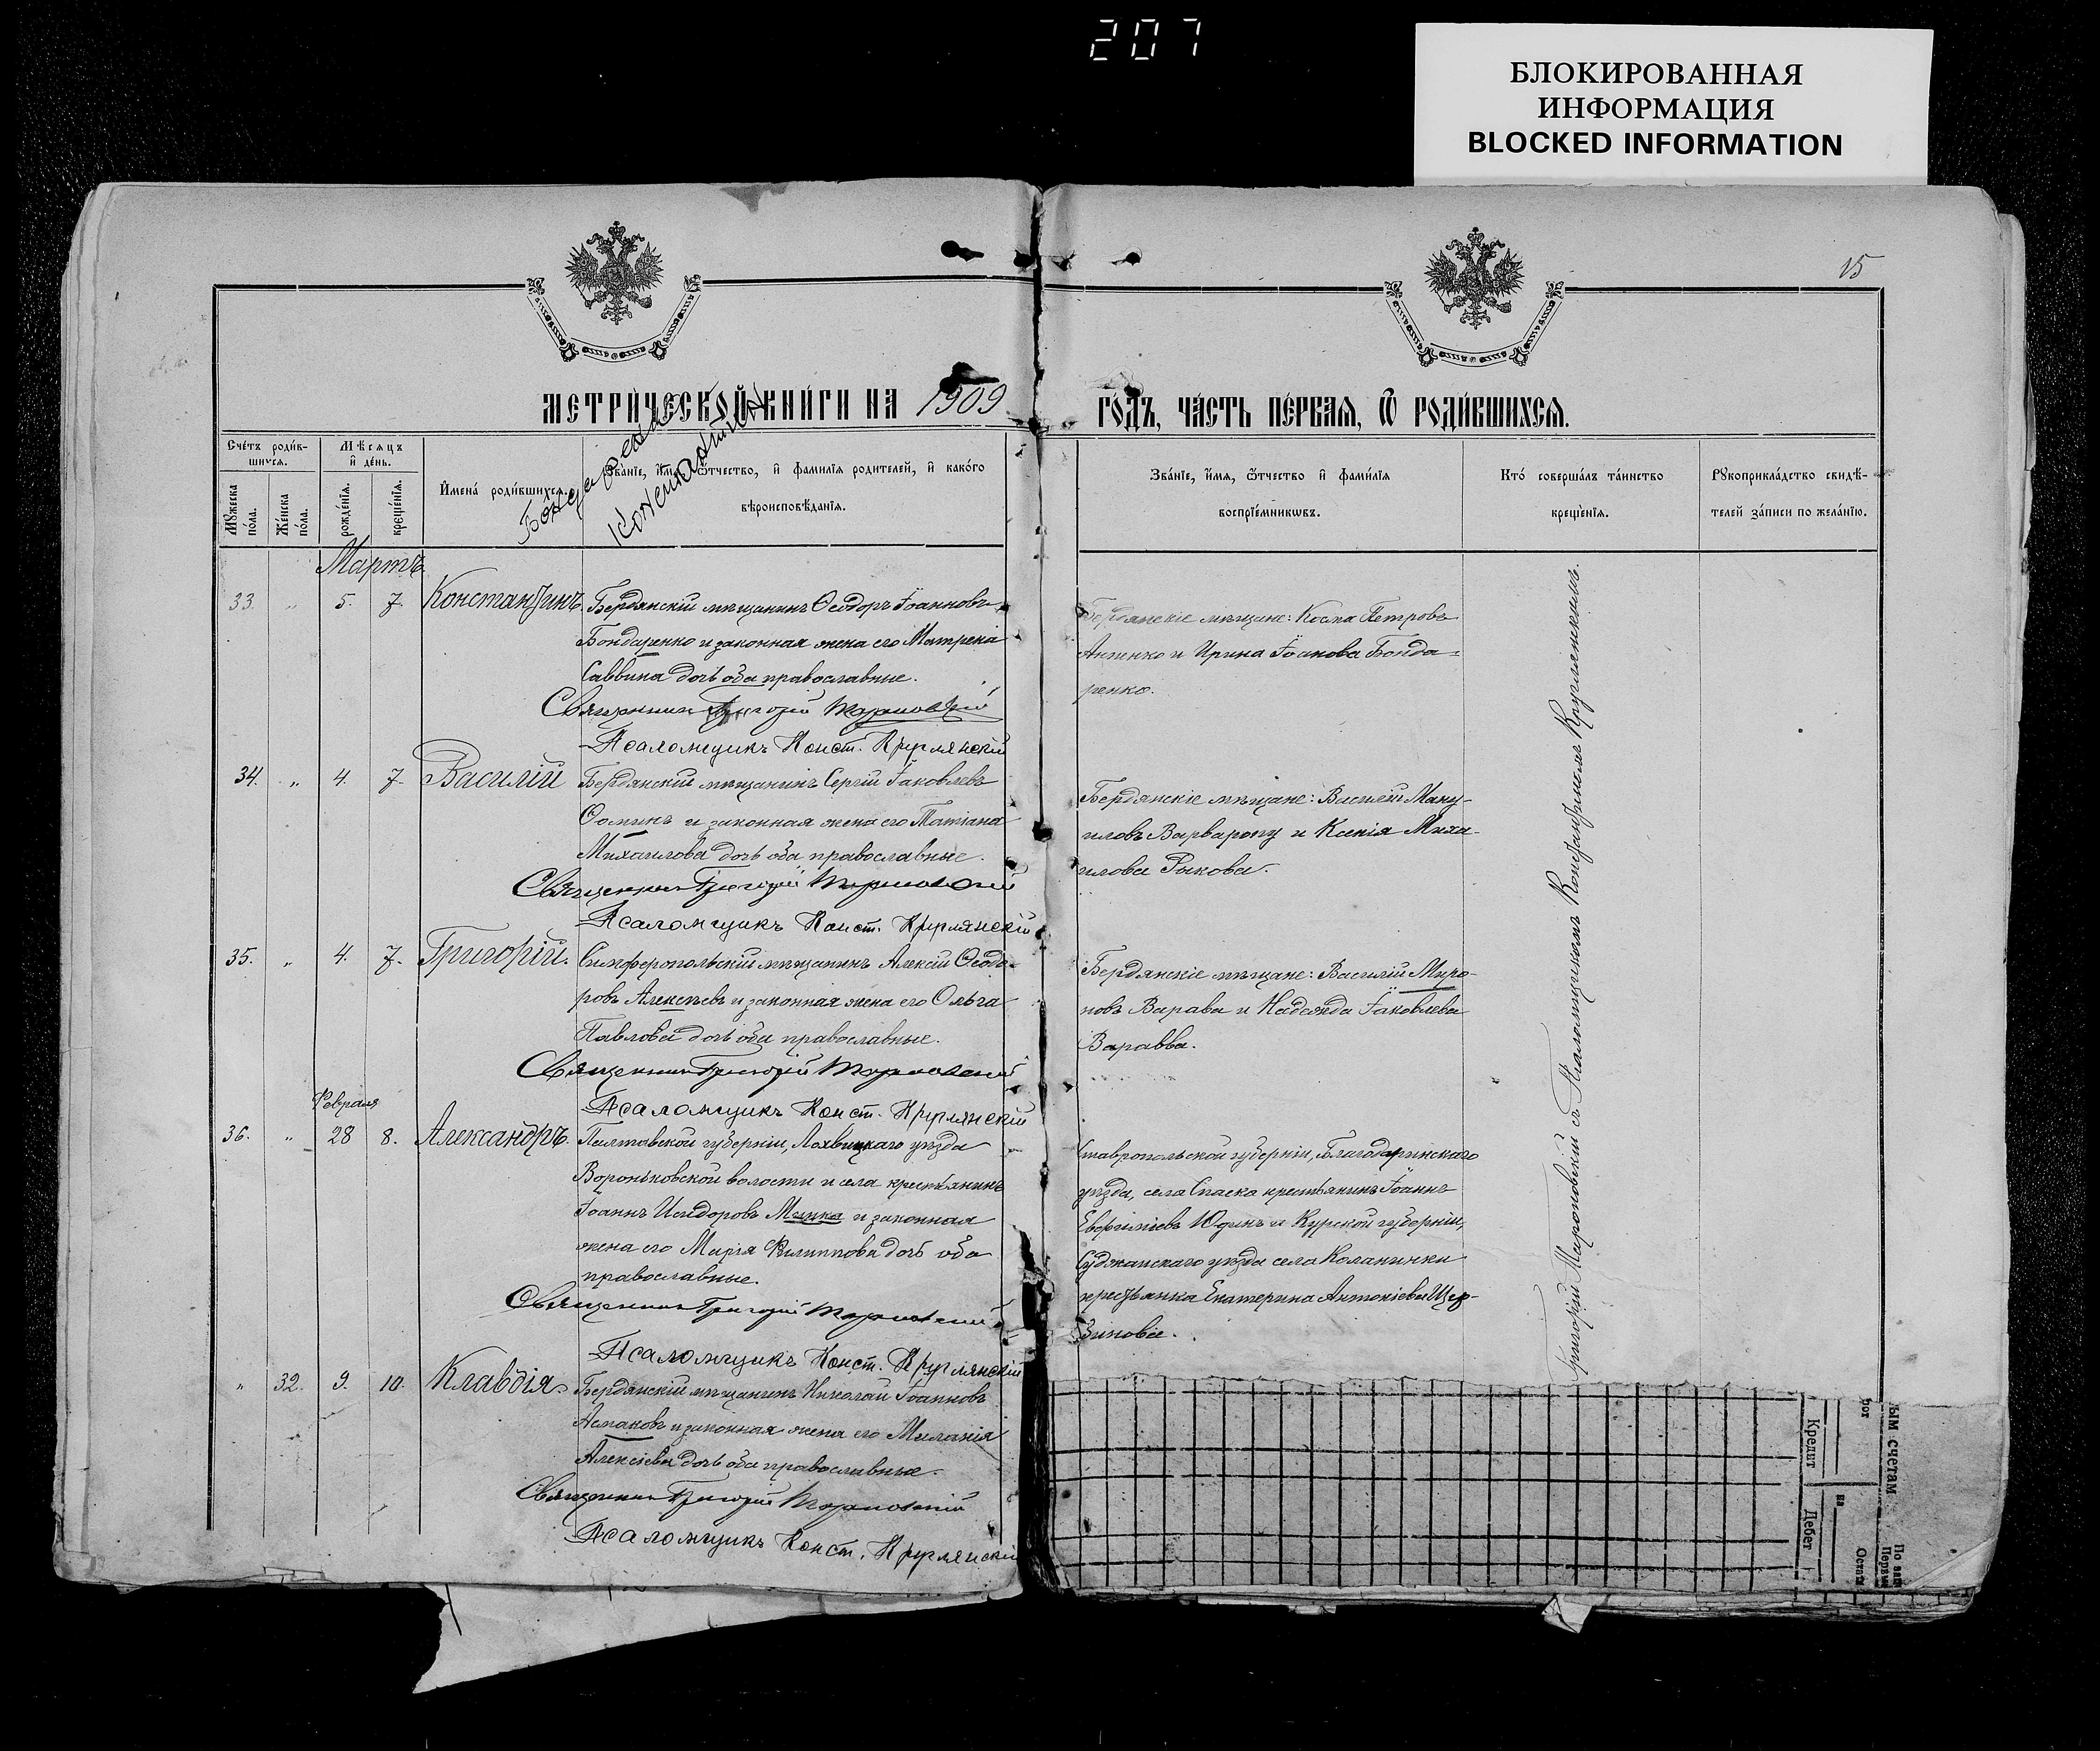 207
БЛОКИРОВАННАЯ
ИНФОРМАЦИЯ
BLOCKED INFORMATION
15
МЕТРИ́ЧЕСКОЙ КНИ́ГИ НА 1909
ГО́ДЪ, ЧА́СТЬ ПЕ́РВАЯ, Ѿ РОДИ́ВШИХСЯ.
Бондаренко
Константинъ
Сче́тъ роди́вшихся.
Му́жеска по́ла.
Же́нска по́ла.
Мѣ́сяцъ и҆ де́нь.
рожде́нїя.
креще́нїя.
И҆мена̀ роди́вшихся.
Зва́нїе, и҆́мя, ѻ҆́тчество, и҆ фами́лїя роди́телей, и҆ како́го
вѣроисповѣ́данїя.
Зва́нїе, и҆́мя, ѻ҆́тчество и҆ фами́лїя
воспрїе́мникѡвъ.
Кто̀ соверша́лъ та́инство
креще́нїя.
Рꙋкоприкла́дство свидѣ́-
телей за́писи по жела́нїю.
Мартъ
33. " 5. 7. Константинъ. Бердянскій мѣщанинъ Ѳеодоръ Іоанновъ
Бондаренко и законная жена его Матрена
Саввина дочь оба православные.
Священникъ Григорій
Псаломщикъ Конст. Круглянскій
Бердянскіе мѣщане: Косма Петровъ
и Ирина Іоанова Бонда=
ренко.
34. " 4. 7. Василій Бердянскій мѣщанинъ Сергій Іаковлевъ
Ѳоминъ и законная жена его Татіана
Михаилова дочь оба православные.
Священникъ Григорій
Псаломщикъ Конст. Круглянскій
Бердянскіе мѣщане: Василій Ману-
иловъ и Ксенія Миха-
илова Рыкова.
35. " 4. 7. Григорій. Симферопольскій мѣщанинъ Алексій Ѳеодо-
ровъ Алексѣевъ и законная жена его Ольга
Павлова дочь оба православные.
Священникъ Григорій
Псаломщикъ Конст. Круглянскій
Бердянскіе мѣщане: Василій Миро-
новъ Варава и Надежда Іаковлева
Варавва.
Февраля
36. " 28 8. Александръ. Полтавской губерніи, Лохвицкаго уѣзда
Вороньковской волости и села крестьянинъ
Іоаннъ Исидоровъ Минка и законная
жена его Марія Филиппова дочь оба
православные.
Священникъ Григорій
Псаломщикъ Конст. Круглянскій
Ставропольской губерніи, Благодаринскаго
уѣзда, села Спаска крестьянинъ Іоаннъ
Юдинъ и Курской губерніи,
Суджанскаго уѣзда села
крестьянка Екатерина Антоніева
" 32. 9. 10. Клавдія. Бердянскій мѣщанинъ Николай Іоанновъ
и законная жена его Миланія
Алексіева дочь оба православные.
Священникъ Григорій
Псаломщикъ Конст. Круглянскій
Григорій съ Псаломщикомъ Константиномъ Круглянскимъ.
Кредит
Дебет
на
ым счетам